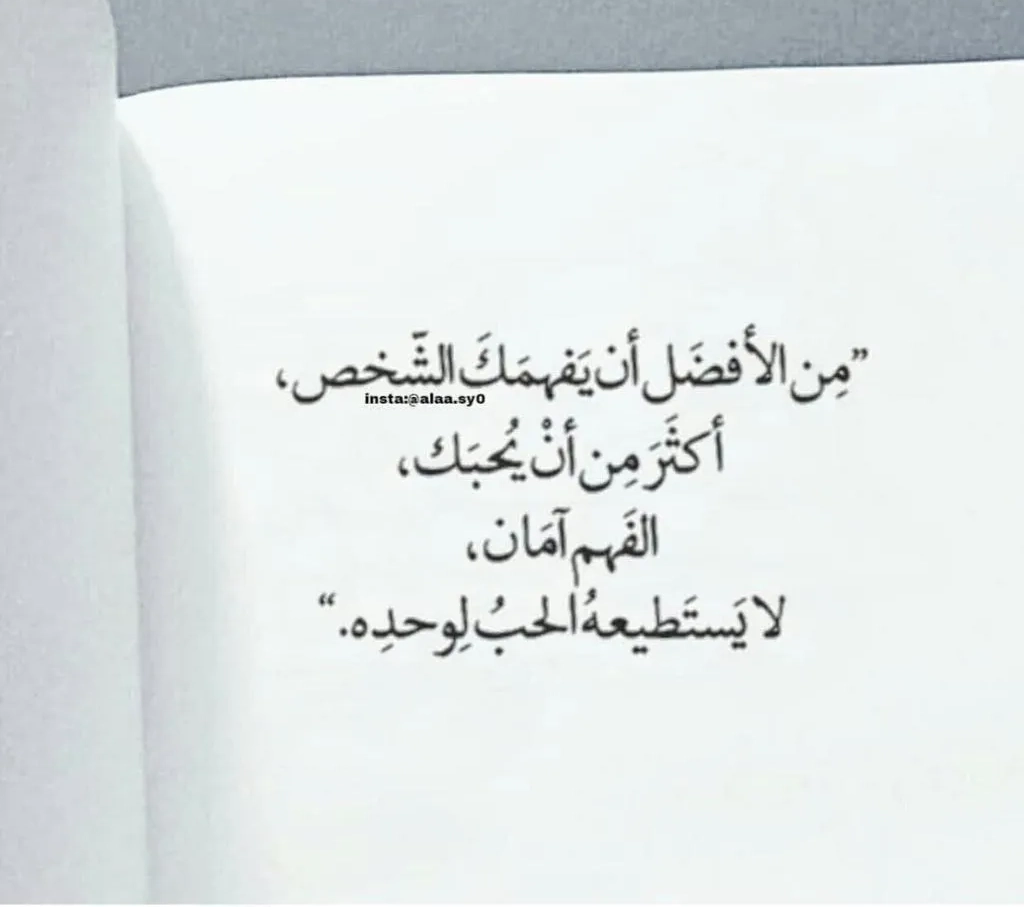 ”مِن الأفضَل أن يَفهمَكَ الشَّخص،
insta:@alaa.sy0
أكثَرَ مِن أنْ يُحبَك،
الفَهم آمَان،
لا يَستَطيعهُ الحبُ لِوحدِه.“